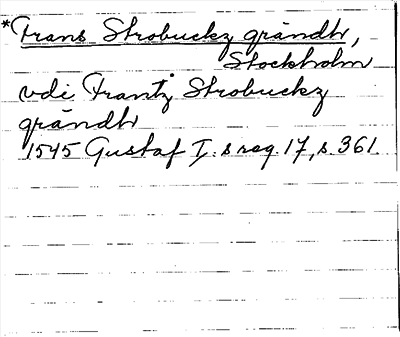 *Frans Strobuckz grändh,
Stockholm
vdi Frantz Strobuckz
grändh
1545 Gustaf I:s reg. 17, s. 361.